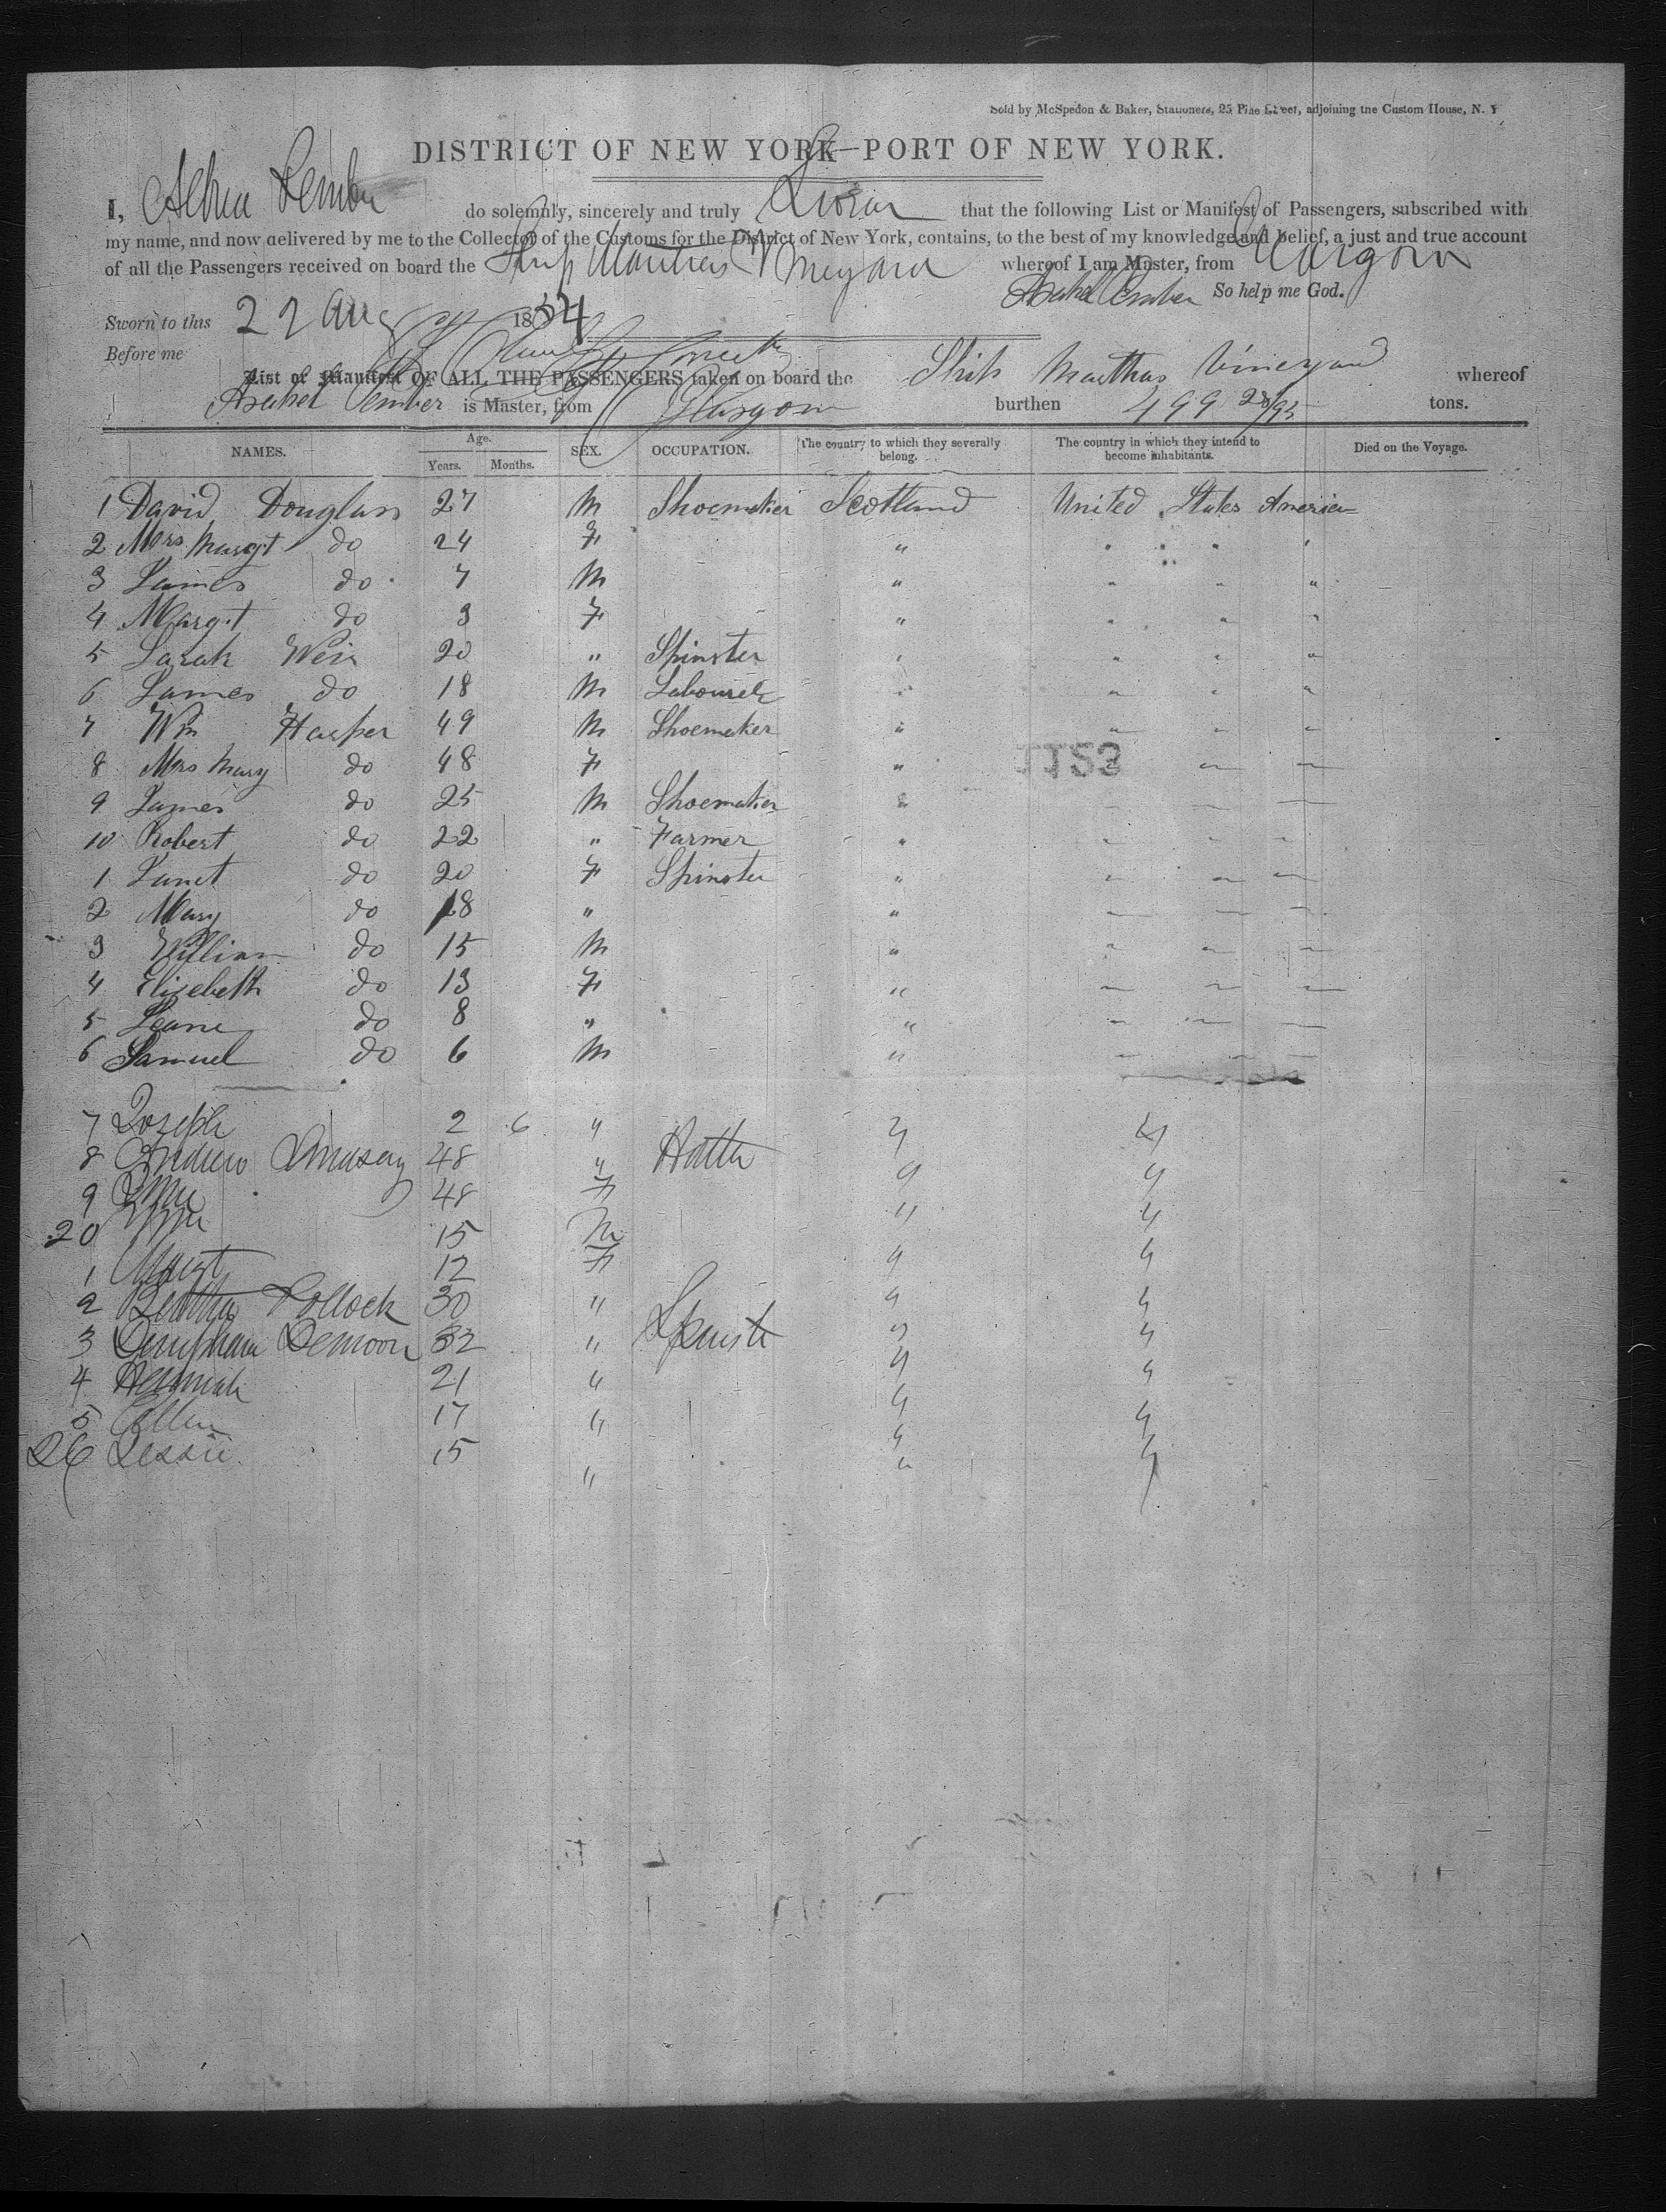 Sold by McSpedon & Baker, Stationers, 25 Pine Street, adjoining the Custom House, N. Y
DISTRICT OF NEW YORK—PORT OF NEW YORK.
I, do solemnly, sincerely and truly Swear that the following List or Manifest of Passengers, subscribed with
my name, and now delivered by me to the Collector of the Customs for the District of New York, contains, to the best of my knowledge and belief, a just and true account
of all the Passengers received on board the Ship Marthas Vineyard whereof I am Master, from Glasgow
So help me God.
Sworn to this 22 Aug 1854
Before me
List or Manifest OF ALL THE PASSENGERS taken on board the Ship Marthas Vineyard whereof
is Master, from Glasgow burthen 499 28/95 tons.
NAMES. Age. Years. Months. SEX. OCCUPATION. The country to which they severally belong. The country in which they intend to become inhabitants. Died on the Voyage.
1 David Douglass 27 M Shoemaker Scotland United States America
2 Mrs Margt do 24 F " " " "
3 James do 7 M " " " "
4 Margt do 3 F " " " "
5 Sarah Weir 20 " Spinster " " " "
6 James do 18 M Labourer " " " "
7 Wm Harper 49 M Shoemaker " " " "
8 Mrs Mary do 48 F " " " "
1123
9 James do 25 M Shoemaker " " " "
10 Robert do 22 " Farmer " " " "
1 Janet do 20 F Spinster " " " "
2 Mary do 18 " " " " "
3 William do 15 M " " " "
4 Elisebeth do 13 F " " " "
5 Jeane do 8 " " " " "
6 Samuel do 6 M " " " "
7 Joseph 2 6 " " "
8 Andrew Lindsay 48 " Hatter " "
9 48 F " "
20 15 M " "
1 Margt 12 F " "
2 Pollock 30 " " "
3 32 " Spinster " "
4 Hannah 21 " " "
5 Ellen 17 " " "
26 Jessie 15 " " "